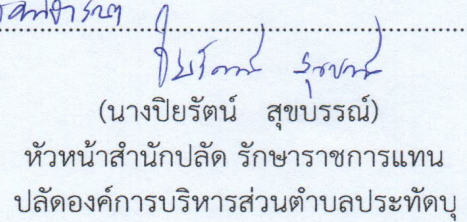 (นางปิยรัตน์ สุขบรรณ์)
หัวหน้าสำนักปลัด รักษาราชการแทน
ปลัดองค์การบริหารส่วนตำบลประทัดบุ